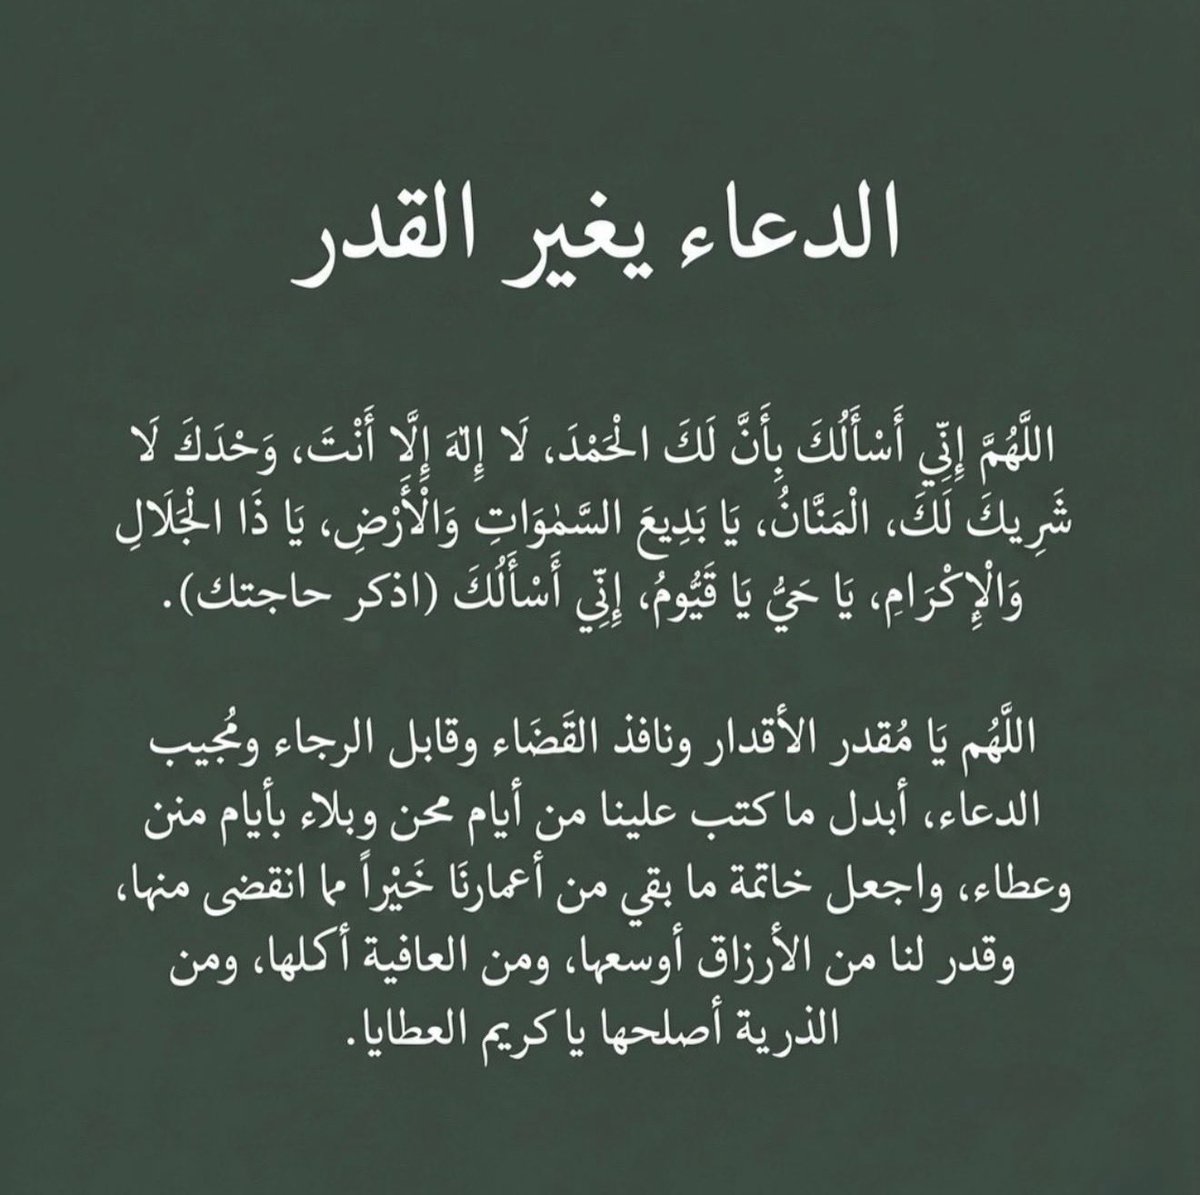 الدعاء يغير القدر
اللَّهُمَّ إِنِّي أَسْأَلُكَ بِأَنَّ لَكَ الْحَمْدَ، لَا إِلَهَ إِلَّا أَنْتَ، وَحْدَكَ لَا
شَرِيكَ لَكَ، الْمَنَّانُ، يَا بَدِيعَ السَّمٰوَاتِ وَالْأَرْضِ، يَا ذَا الْجَلَالِ
وَالْإِكْرَامِ، يَا حَيُّ يَا قَيُّومُ، إِنِّي أَسْأَلُكَ (اذكر حاجتك).
اللَّهُم يَا مُقدر الأقدار ونافذ القَضَاء وقابل الرجاء ومُجيب
الدعاء، أبدل ما كتب علينا من أيام محن وبلاء بأيام منن
وعطاء، واجعل خاتمة ما بقي من أعمارنَا خَيْراً مما انقضى منها،
وقدر لنا من الأرزاق أوسعها، ومن العافية أكلها، ومن
الذرية أصلحها يا كريم العطايا.